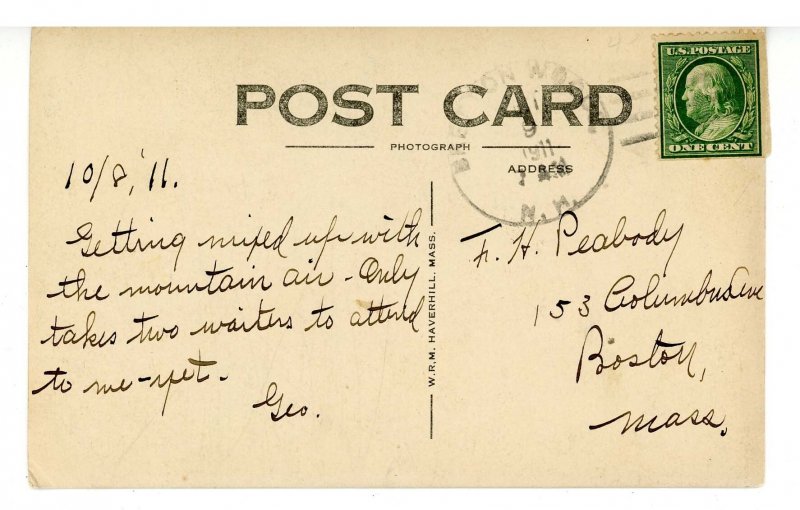 POST CARD
PHOTOGRAPH
ADDRESS
U.S. POSTAGE
ONE CENT
BRETTON WOODS
9
1911
N.H.
10/8,'11.
Getting mixed up with
the mountain air - Only
takes two waiters to attend
to me - yet -
Geo.
W.R.M. HAVERHILL, MASS.
F. H. Peabody
153 Columbus Ave
Boston,
Mass.